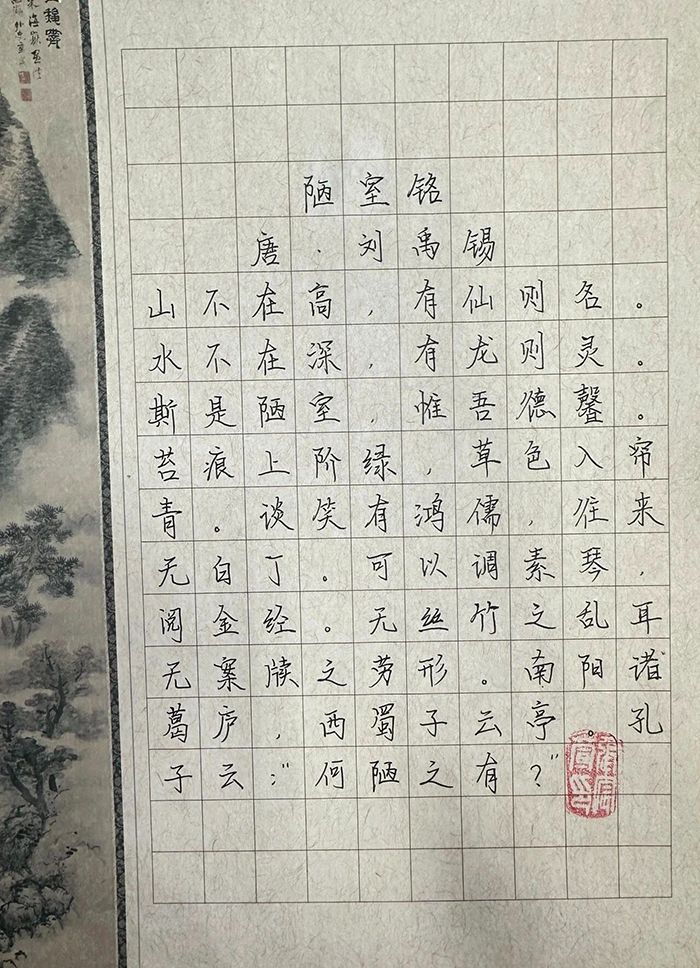 陋室铭
唐·刘禹锡
山不在高，有仙则名。
水不在深，有龙则灵。
斯是陋室，惟吾德馨。
苔痕上阶绿，草色入帘
青。谈笑有鸿儒，往来
无白丁。可以调素琴，
阅金经。无丝竹之乱耳
无案牍之劳形。南阳诸
葛庐，西蜀子云亭。孔
子云："何陋之有？"